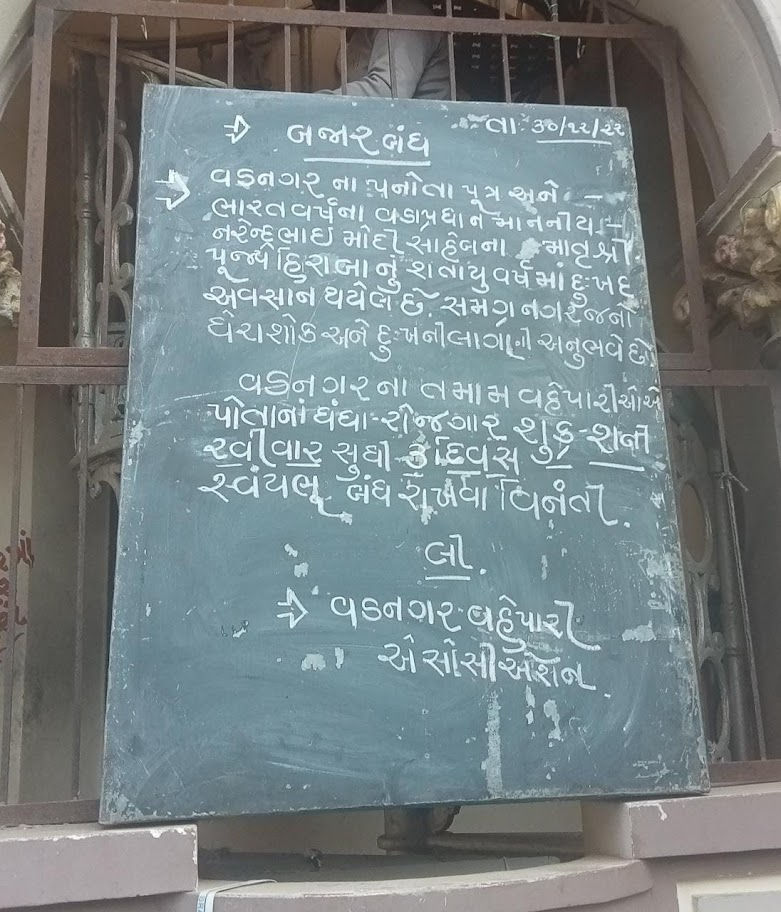 ⇒ બજાર બંધ તા. ૩૦/૧૨/૨૨
⇒ વડનગર ના પનોતા પૂત્ર અને –
ભારતવર્ષના વડાપ્રધાન માનનીય –
નરેન્દ્રભાઇ મોદી સાહેબના માતૃશ્રી
પૂજ્ય હિરાબાનું શતાયુ વર્ષમાં દુઃખદ
અવસાન થયેલ છે. સમગ્ર નગરજનો
ઘેરાશોક અને દુઃખની લાગણી અનુભવે છે
વડનગરના તમામ વહેપારીઓએ
પોતાનાં ધંધા-રોજગાર શુક્ર-શની
રવીવાર સુધી ૩ દિવસ
સ્વંયભૂ બંધ રાખવા વિનંતી.
લી.
⇒ વડનગર વહેપારી
એસોસીએશન